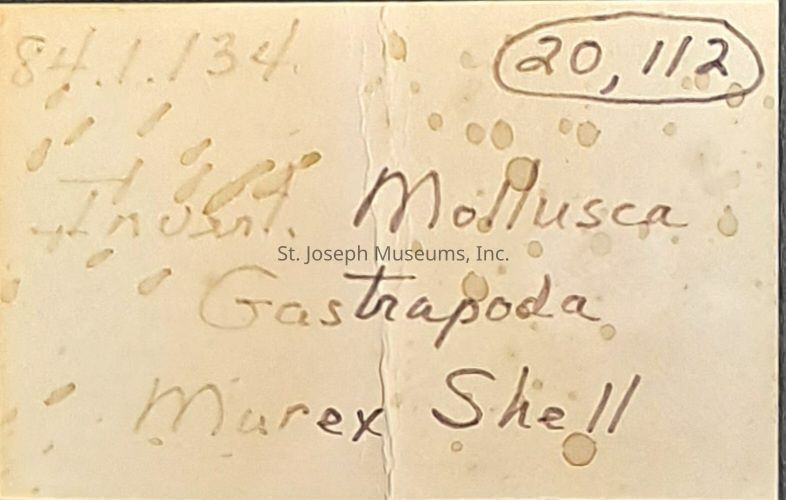 84.1.134. 20,112
Invert. Mollusca
St. Joseph Museums, Inc.
Gastrapoda
Murex Shell